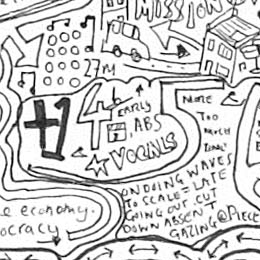 MISSION
27M
+1 4 EARLY
ABS
VOCALS
MORE
TOO
MUCH
UNDOING WAVES
TO SCALE = LATE
GOING OUT CUT
DOWN ABSENT
GAZING @ PIECE
e economy.
ocracy